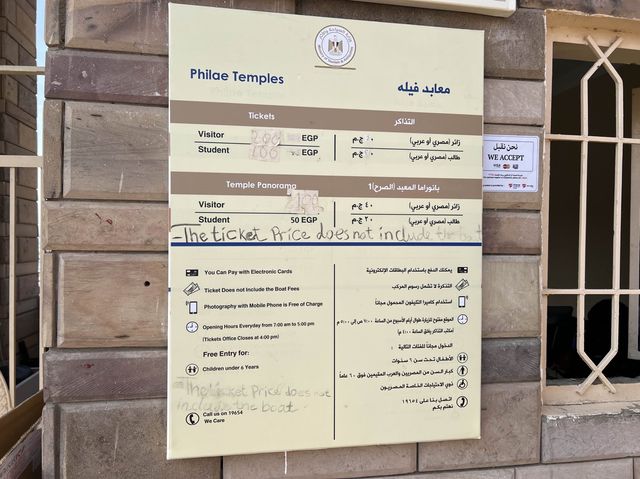 Philae Temples
معابد فيله
Tickets
التذاكر
Visitor 200 EGP
زائر (مصري أو عربي) ج.م
Student 100 EGP
طالب (مصري أو عربي) ج.م
Temple Panorama
بانوراما المعبد (الصرح)1
Visitor
زائر (مصري أو عربي) ٤٠ ج.م
Student 50 EGP
طالب (مصري أو عربي) ٢٠ ج.م
-The ticket Price does not include the
You Can Pay with Electronic Cards
يمكنك الدفع باستخدام البطاقات الإلكترونية
Ticket Does not Include the Boat Fees
التذكرة لا تشمل رسوم المركب
Photography with Mobile Phone is Free of Charge
استخدام كاميرا التليفون المحمول مجاناً
Opening Hours Everyday from 7:00 am to 5:00 pm
(Tickets Office Closes at 4:00 pm)
الموقع مفتوح للزيارة طوال أيام الأسبوع من الساعة ٧:٠٠ ص إلى ٥:٠٠ م
Free Entry for:
الدخول مجاناً للفئات التالية:
Children under 6 Years
الأطفال تحت سن ٦ سنوات
كبار السن من المصريين والعرب المقيمين فوق ٦٠ عاماً
ذوي الاحتياجات الخاصة المصريون
-The ticket Price does not
include the boat
Call us on 19654
We Care
اتصل بنا على ١٩٦٥٤
نهتم بكم
نحن نقبل
WE ACCEPT
VISA